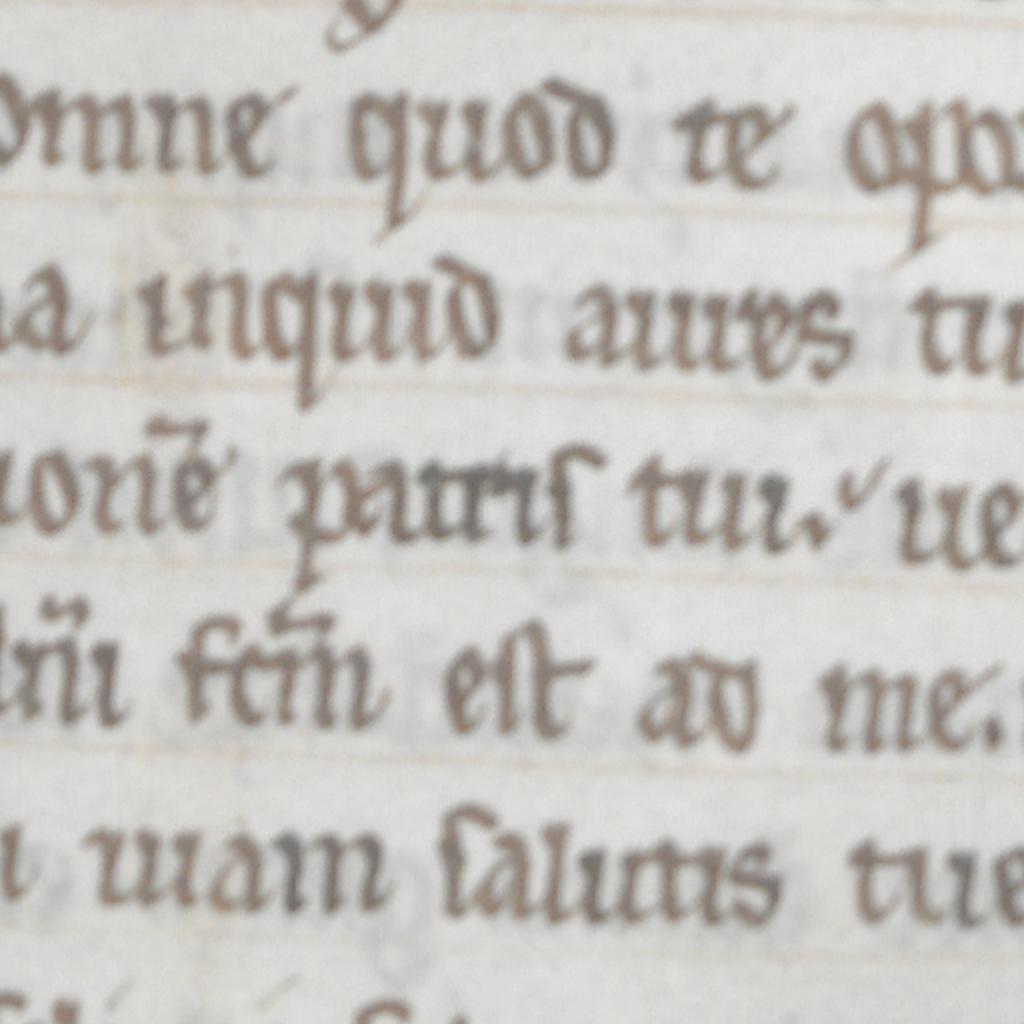 omne quod te opor
na inquid aures tu
tionē patris tui. ue
dn̄i fcm̄ est ad me.
i uiam salutis tue